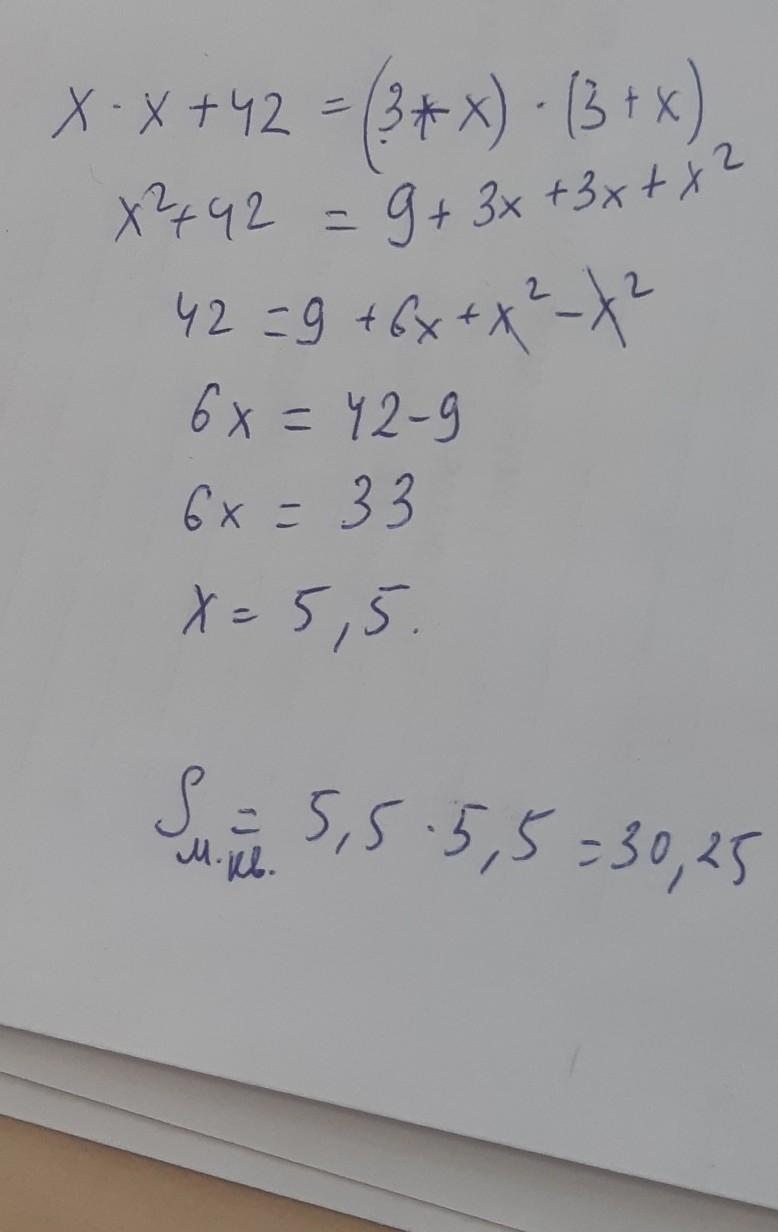 x · x + 42 = (3 + x) · (3 + x)
x² + 42 = 9 + 3x + 3x + x²
42 = 9 + 6x + x² - x²
6x = 42 - 9
6x = 33
x = 5,5.
S м.кв. = 5,5 · 5,5 = 30,25